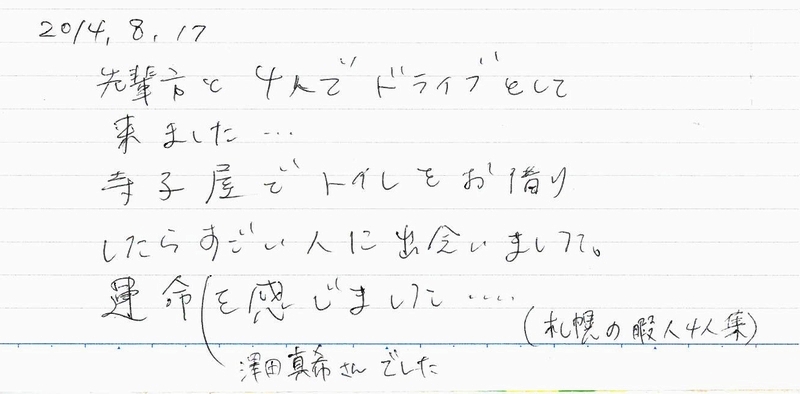 2014, 8, 17
先輩方と4人でドライブとして
来ました…
寺子屋でトイレをお借り
したらすごい人に出会いまして。
運命を感じました….
(札幌の暇人4人集)
澤田真希さんでした